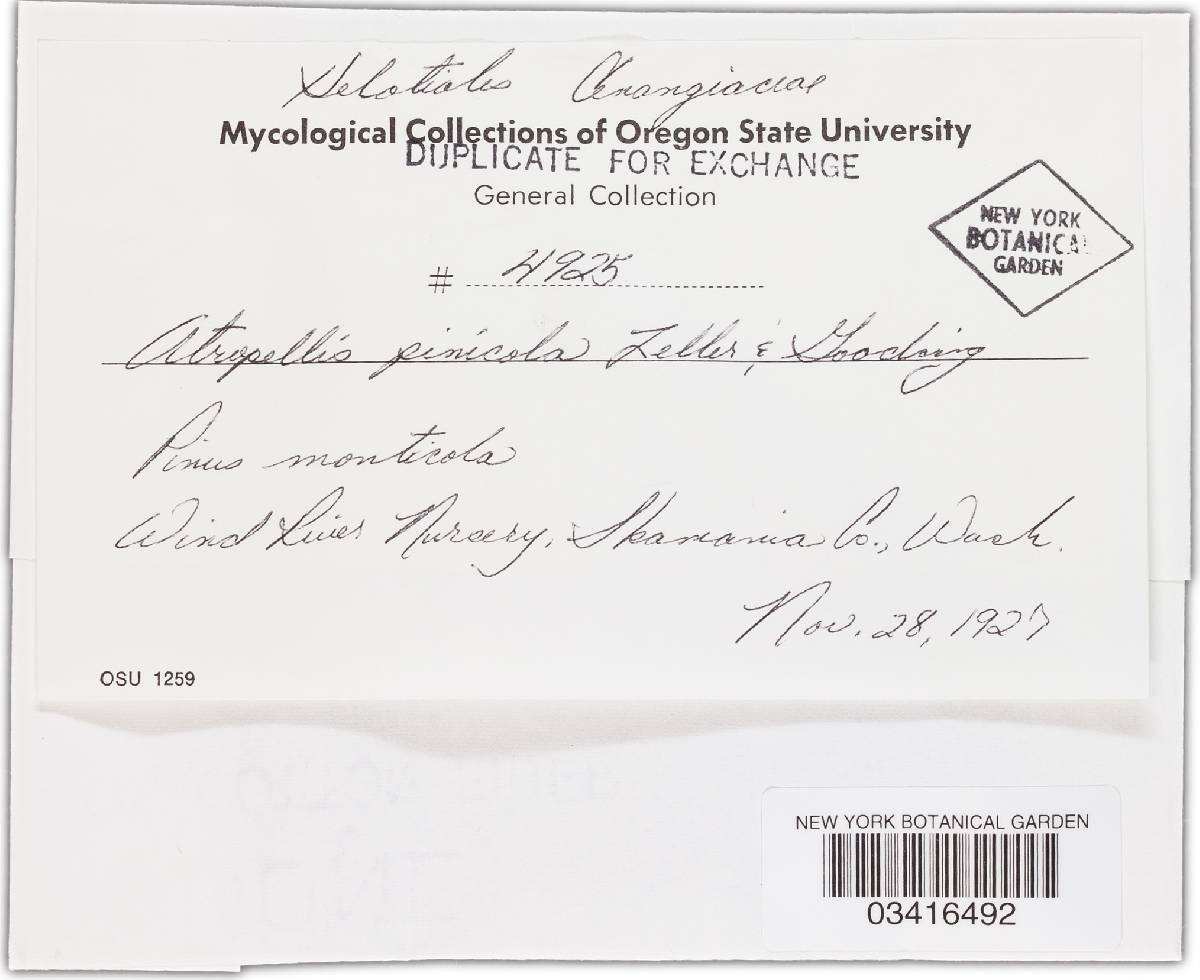 Helotiales Cenangiaceae
Mycological Collections of Oregon State University
DUPLICATE FOR EXCHANGE
General Collection
NEW YORK
BOTANICAL
GARDEN
# 4925
Atropellis pinicola Zeller & Gooding
Pinus monticola
Wind River Nursery, Skamania Co., Wash.
Nov. 28, 1927
OSU 1259
NEW YORK BOTANICAL GARDEN
03416492